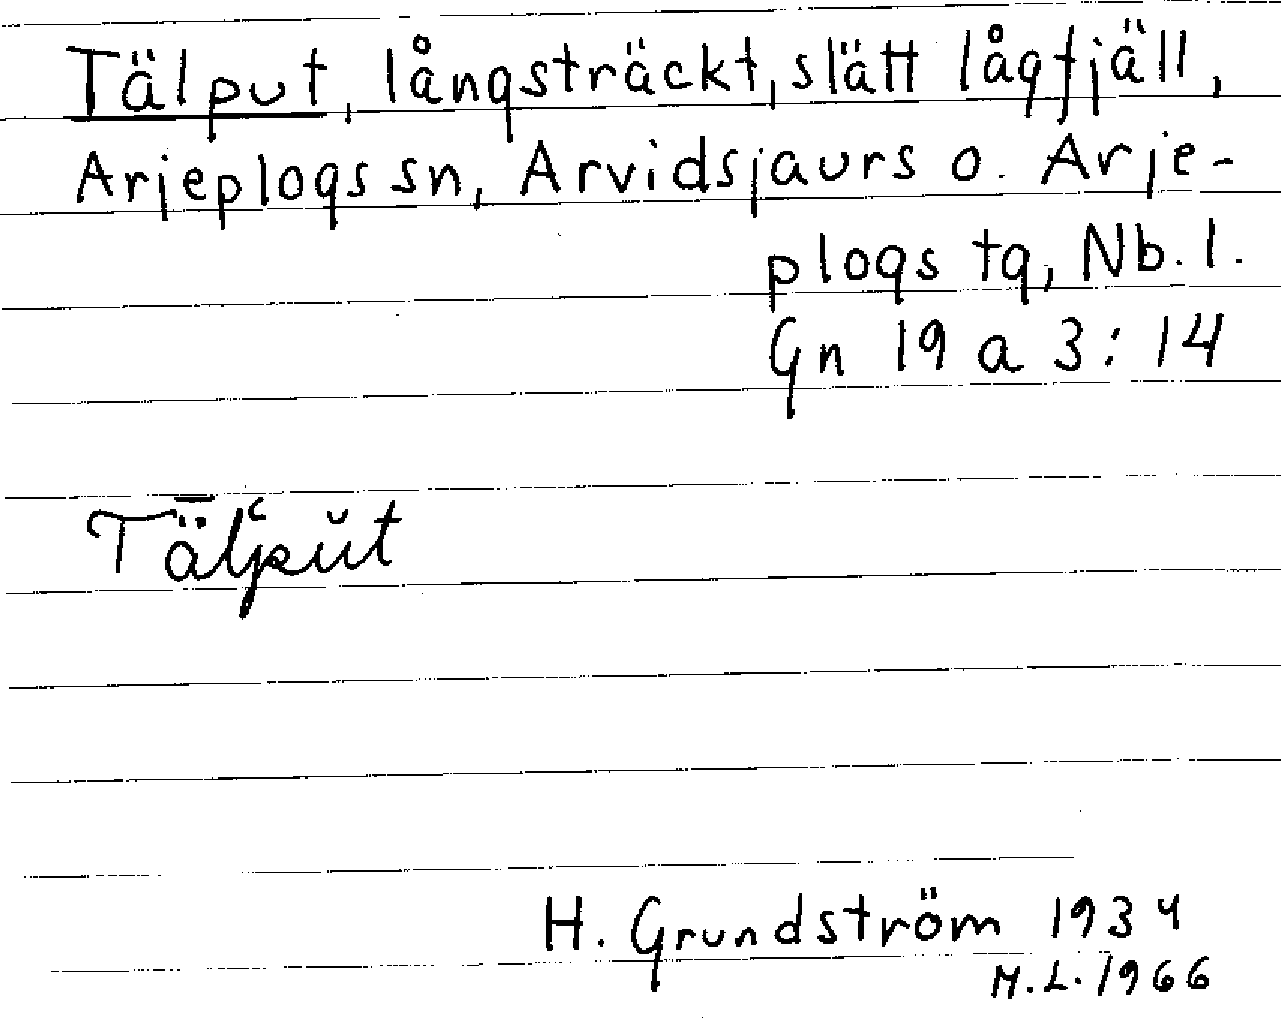 Tälput, långsträckt, slätt lågfjäll,
Arjeplogs sn, Arvidsjaurs o. Arje-
plogs tg, Nb. l.
Gn 19 a 3:14
Tǟlʽpŭt
H. Grundström 1934
M.L. 1966